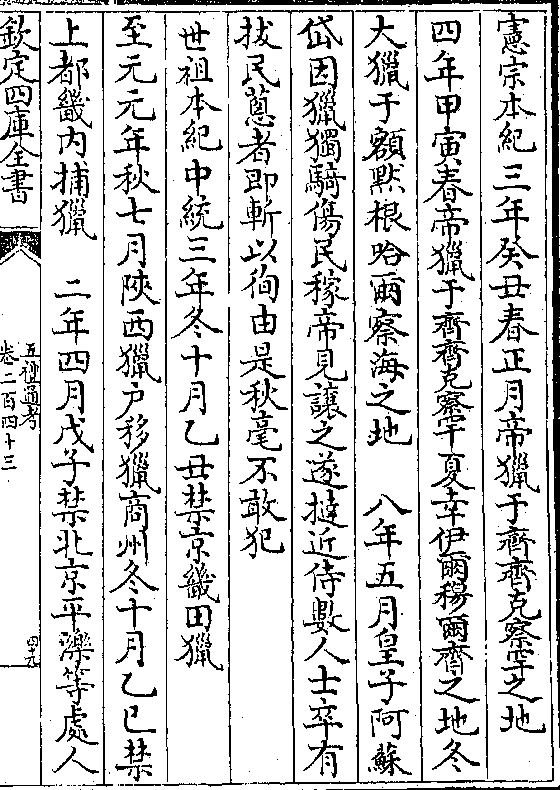 憲宗本紀三年癸丑春正月帝獵于齊齊克察罕之地
四年甲寅春帝獵于齊齊克察罕夏幸伊爾穆爾齊之地冬
大獵于額默根哈爾察海之地　八年五月皇子阿蘇
岱因獵獨騎傷民稼帝見讓之遂撻近侍數人士卒有
拔民蔥者即斬以徇由是秋毫不敢犯
世祖本紀中統三年冬十月乙丑禁京畿田獵
至元元年秋七月陝西獵户移獵商州冬十月乙巳禁
上都畿内捕獵　二年四月戊子禁北京平灤等處人
欽定四庫全書
五禮通考
卷二百四十三
四十九